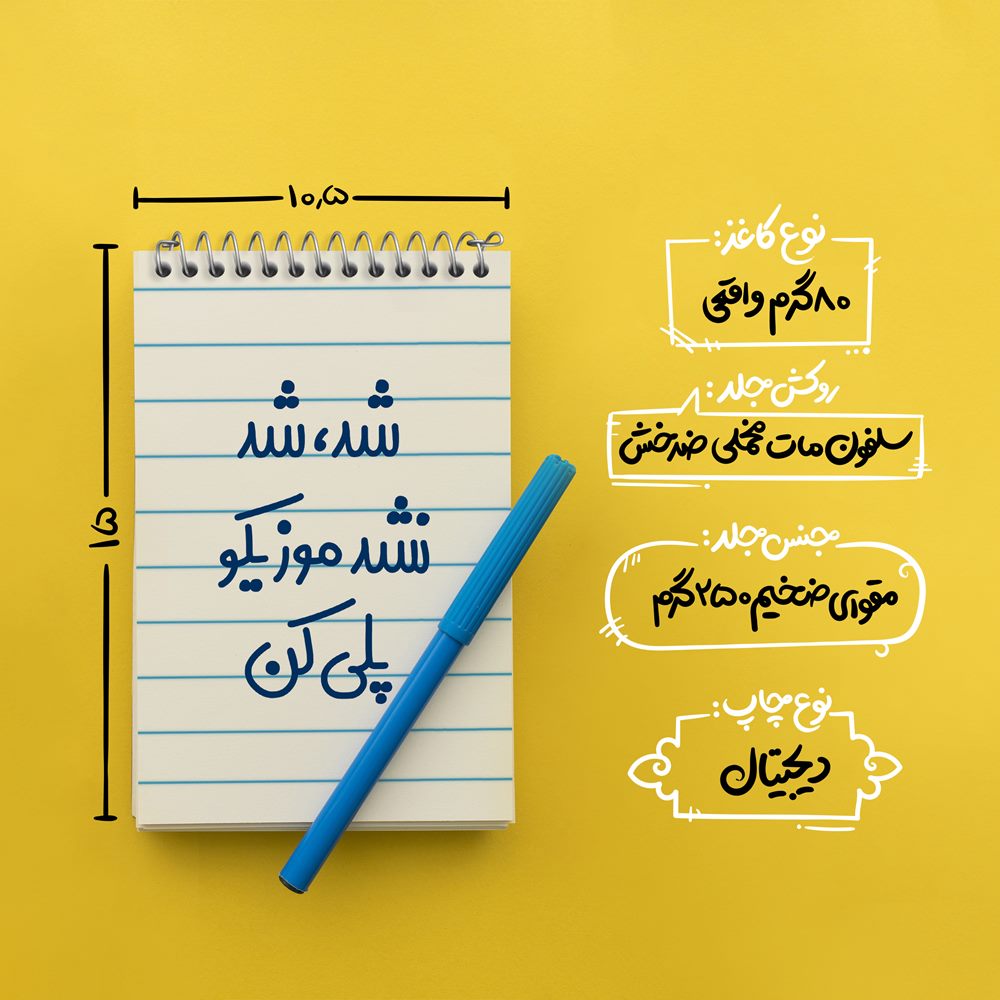 ۱۰٫۵
۱۵
شد، شد
نشد موزیکو
پلی کن
نوع کاغذ:
۸۰ گرم واقعی
روکش جلد:
سلفون مات مخملی ضدخش
جنس جلد:
مقوای ضخیم ۲۵۰ گرم
نوع چاپ:
دیجیتال